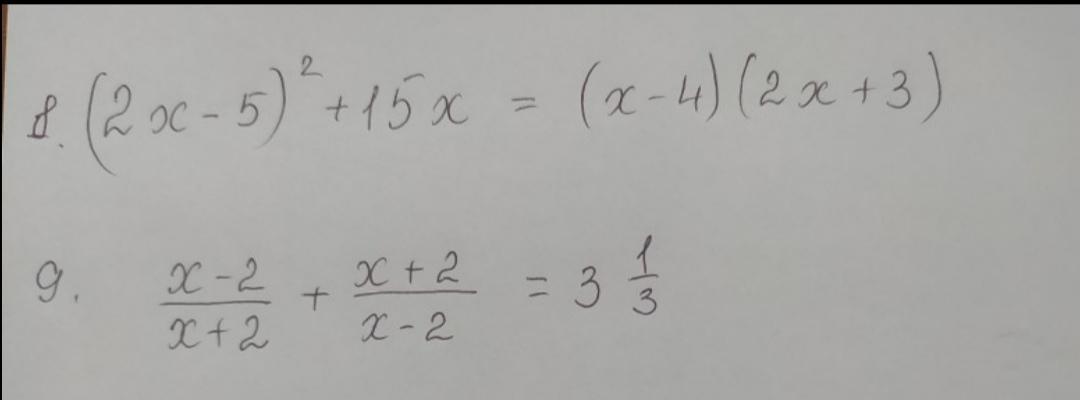 8. (2x-5)² + 15x = (x-4)(2x+3)
9. \frac{x-2}{x+2} + \frac{x+2}{x-2} = 3 \frac{1}{3}